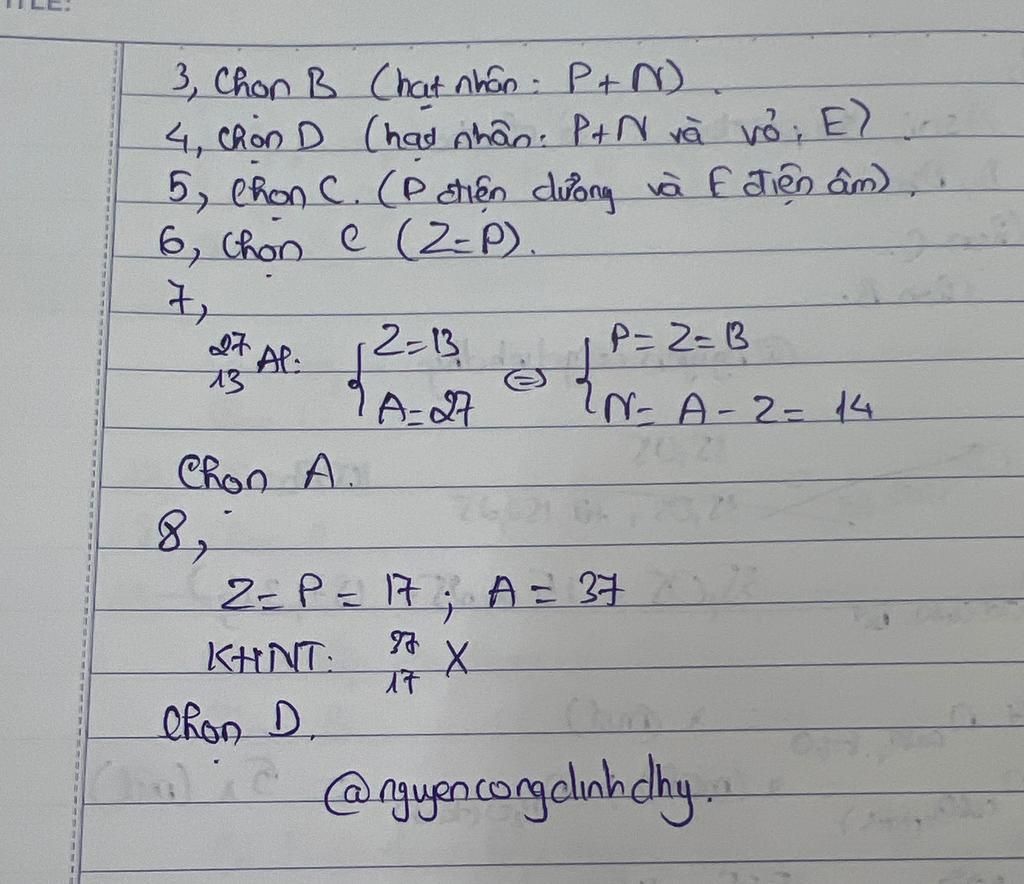 TITLE:
3, Chọn B (hạt nhân: P+N).
4, Chọn D (hạt nhân: P+N và vỏ: E)
5, Chọn C. (P điện dương và E điện âm).
6, Chọn C (Z=P).
7,
²⁷₁₃Al: { Z=13 A=27 ⇔ { P=Z=13 N=A-Z=14
Chọn A.
8,
Z=P=17; A=37
KHNT: ³⁷₁₇X
Chọn D.
@nguyencongdinhdhy.